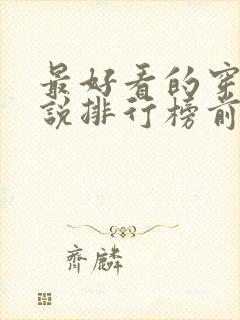 最好看的穿
說排行榜前
齊麟